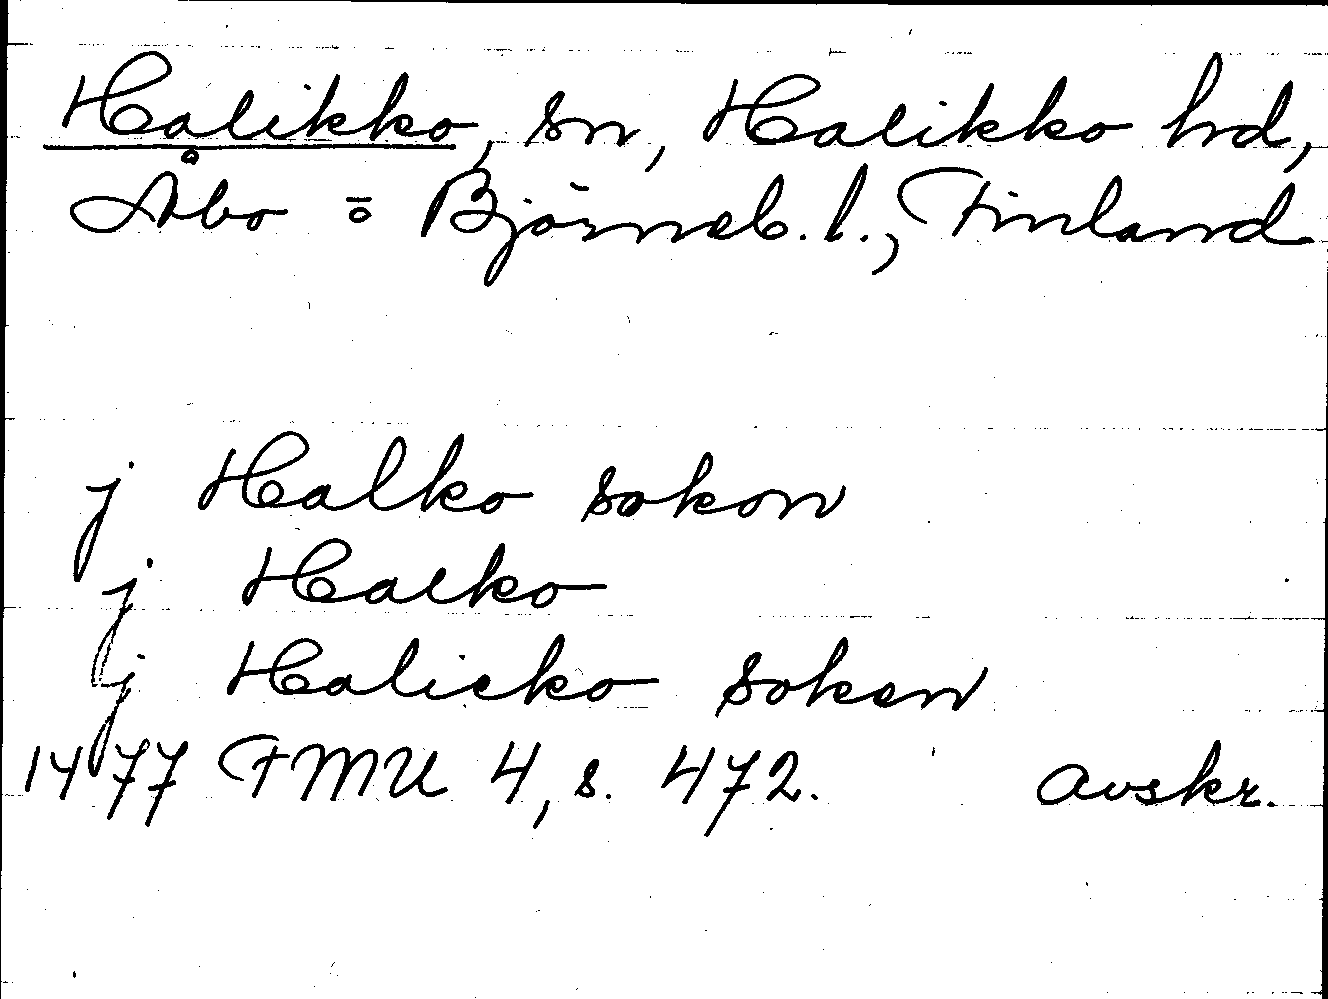 Halikko, sn, Halikko hd,
Åbo o Björneb. l., Finland
j Halko sokon
j Halko
j Halicko soken
1477 FMU 4, s. 472. avskr.